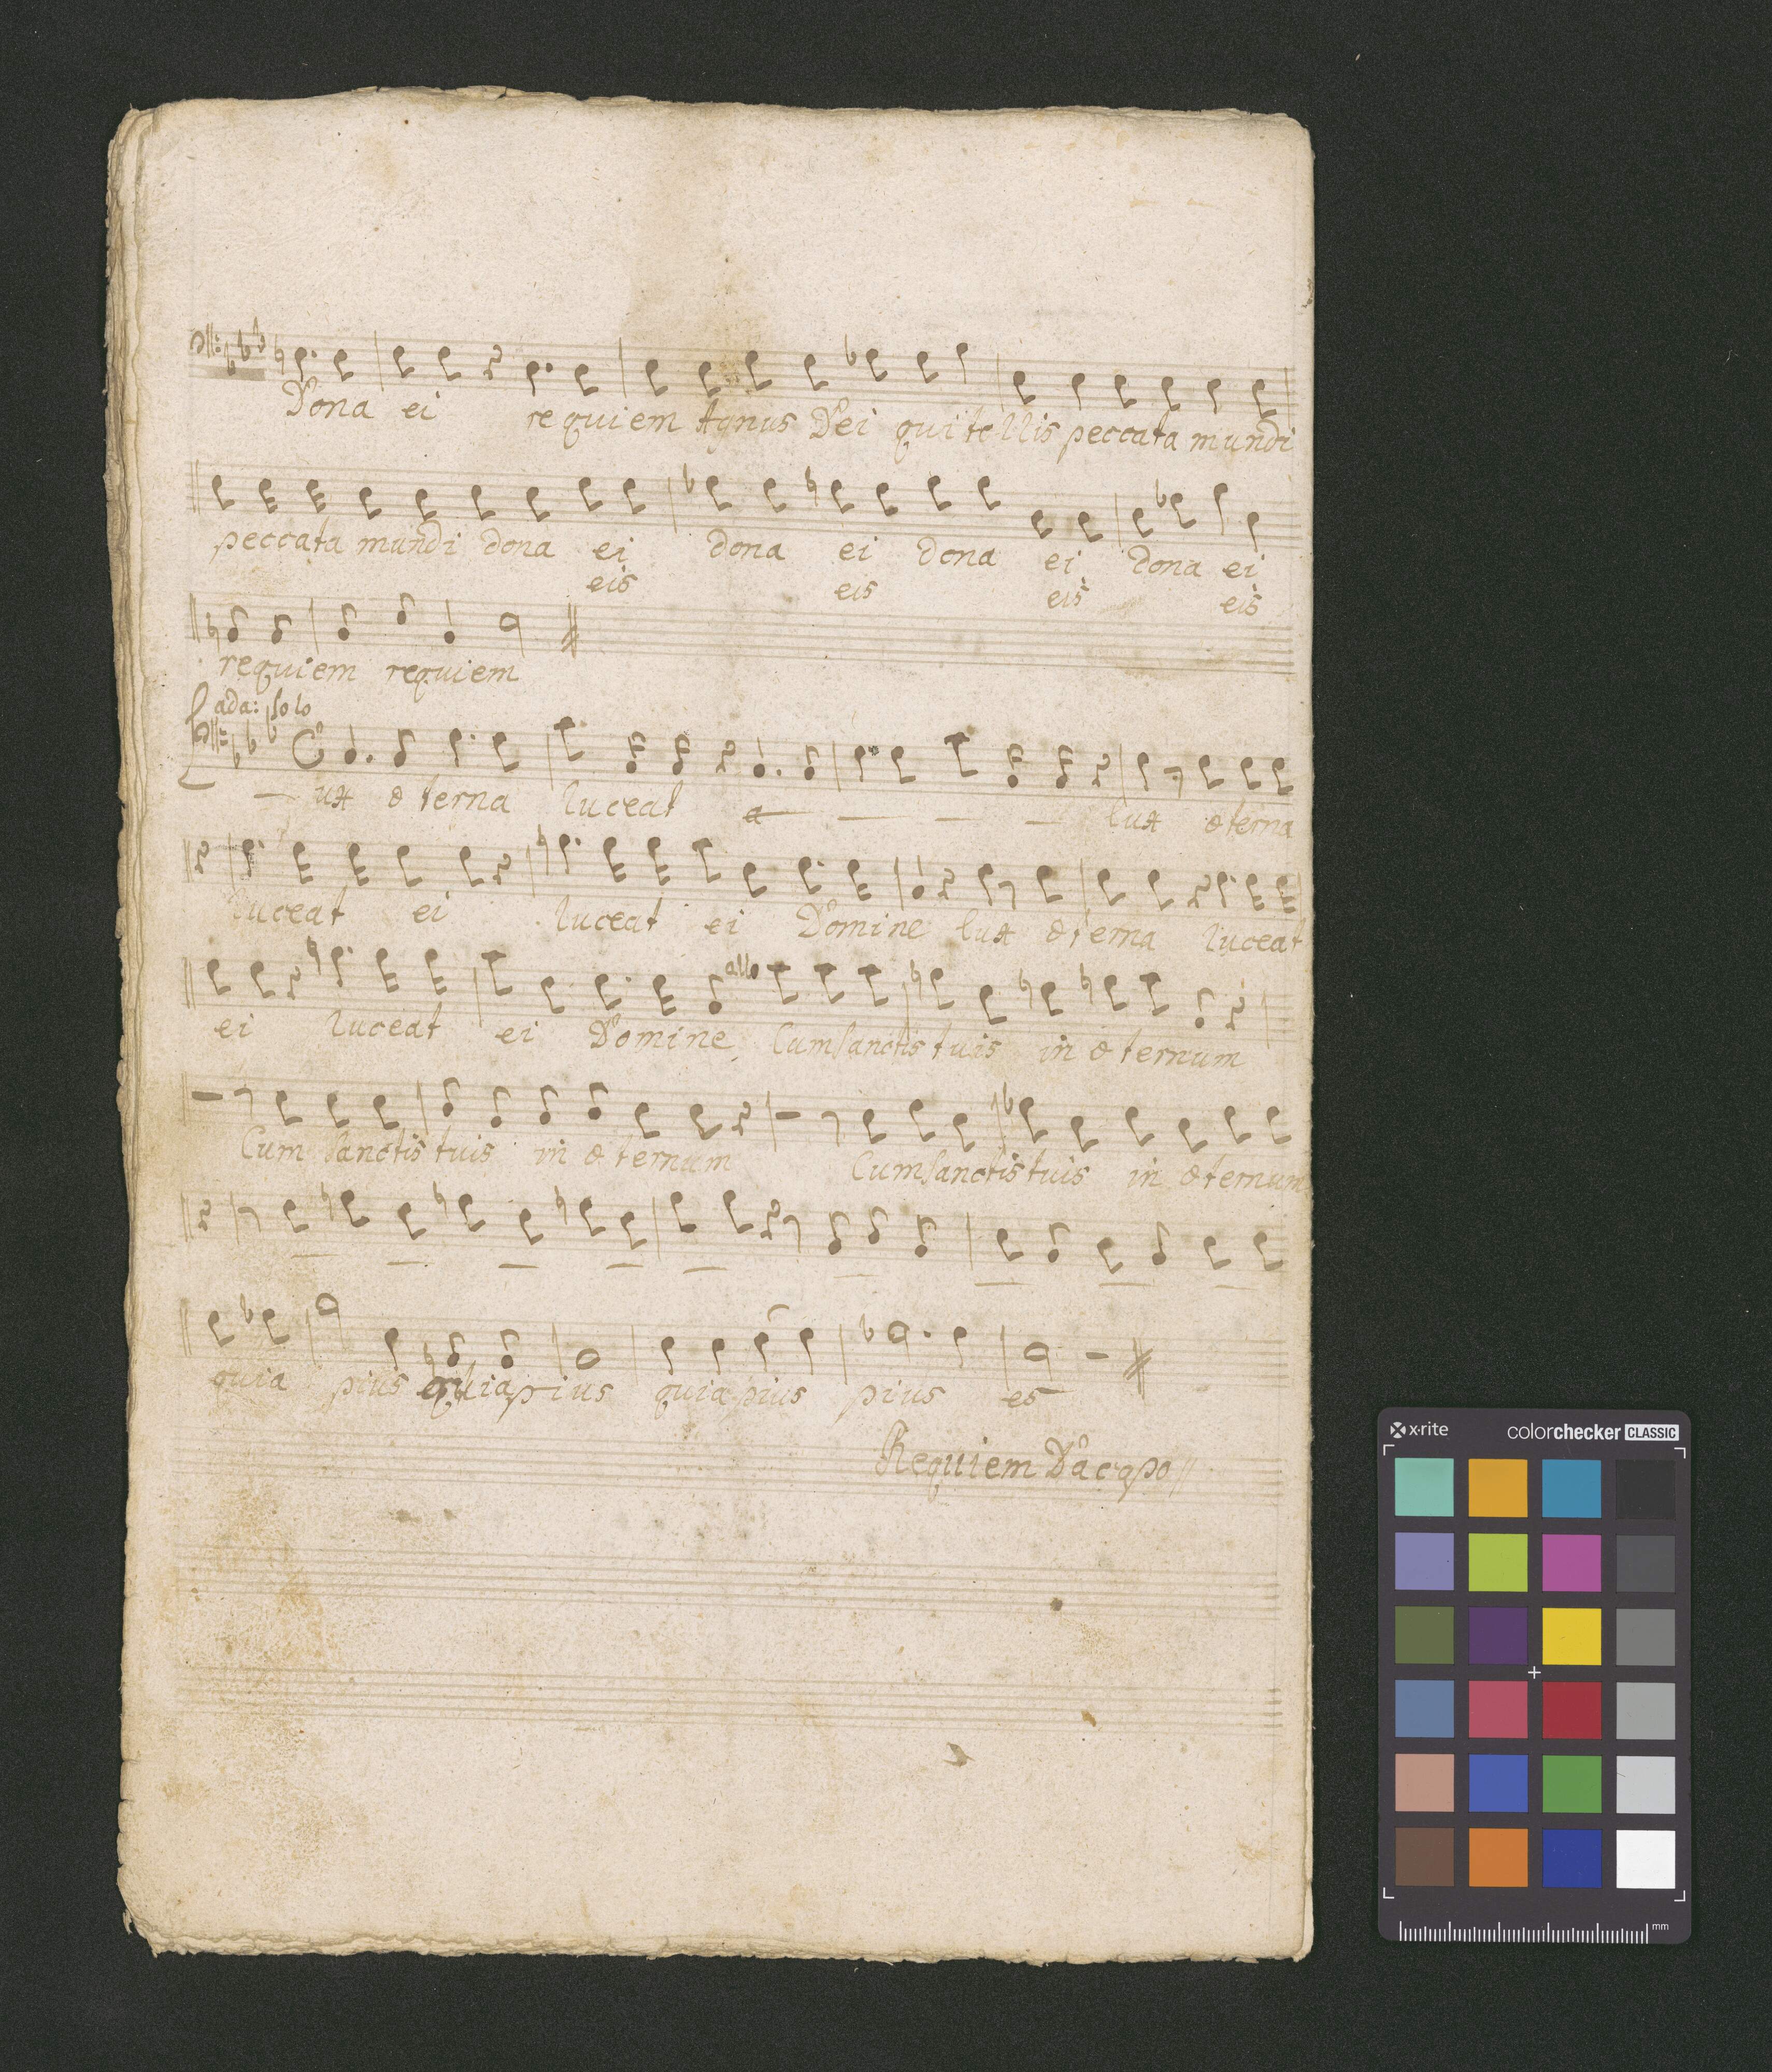 Dona ei requiem Agnus Dei qui tollis peccata mundi
peccata mundi dona ei dona ei dona ei dona ei
eis eis eis eis
requiem requiem
ada: solo
Lux æterna luceat lux æterna
luceat ei luceat ei Domine lux æterna luceat
allo
ei luceat ei Domine Cum sanctis tuis in æternum
Cum sanctis tuis in æternum Cum sanctis tuis in æternum
quia pius quia pius quia pius pius es
Requiem Da capo
x·rite colorchecker CLASSIC
mm